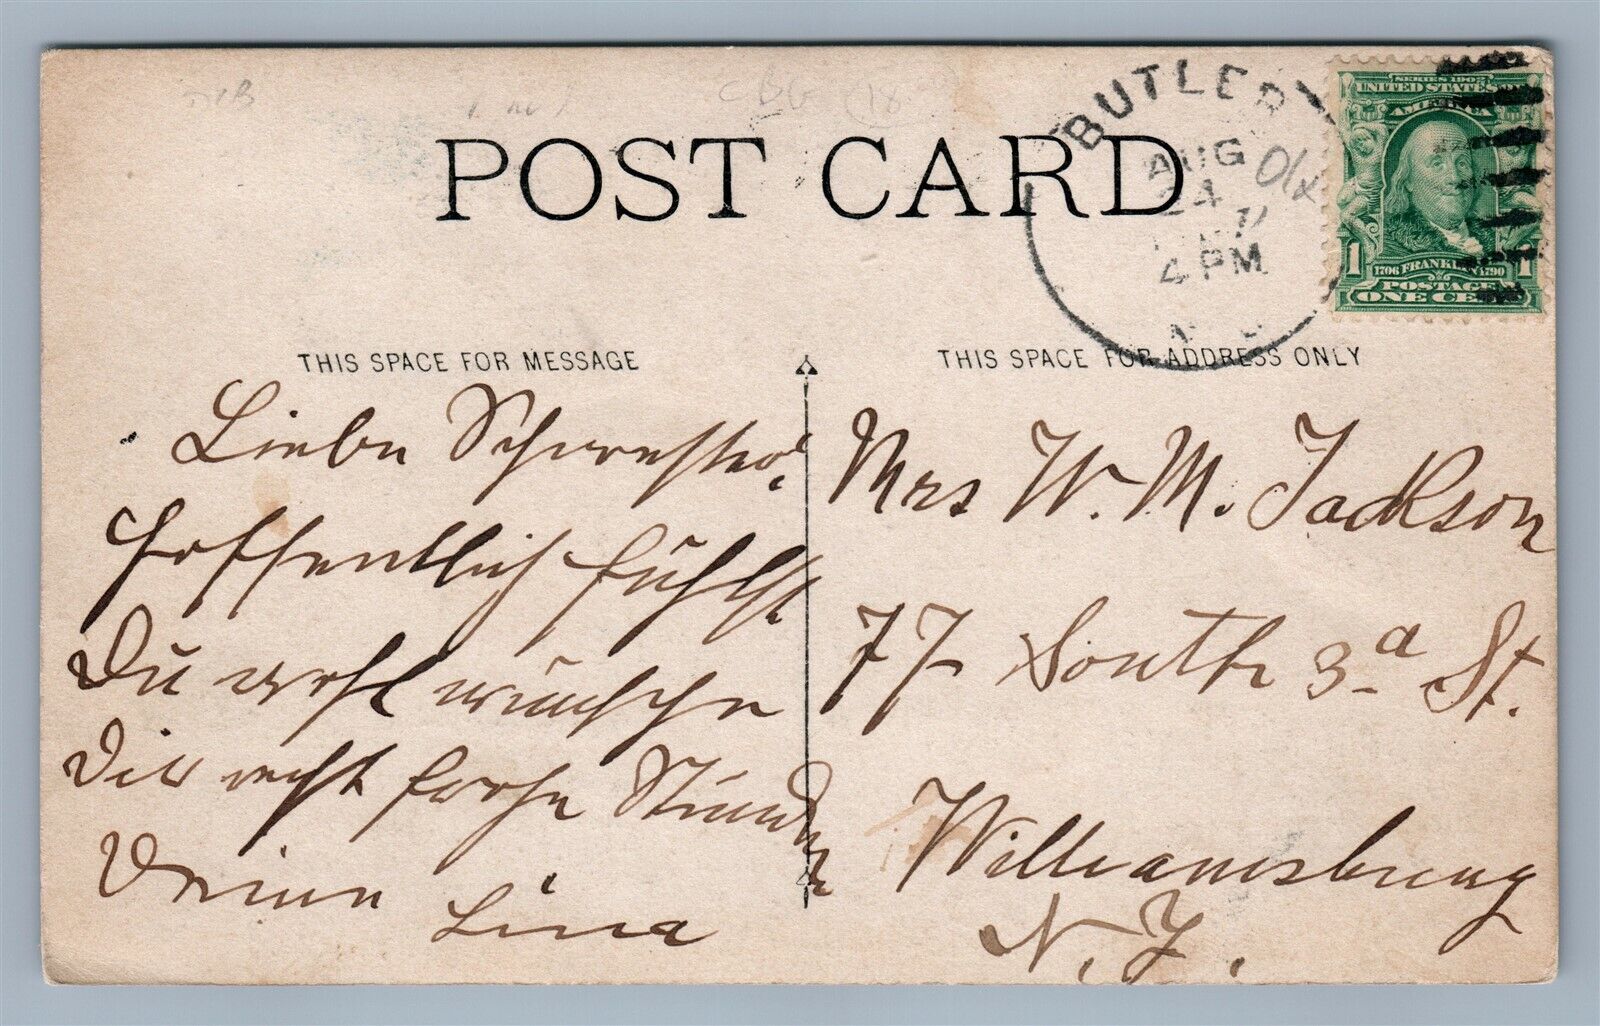 POST CARD
BUTLER
AUG
24
4 PM
SERIES 1902
UNITED STATES
AMERICA
1706 FRANKLIN 1790
1 1
POSTAGE
ONE CENT
THIS SPACE FOR MESSAGE
THIS SPACE FOR ADDRESS ONLY
Liebe Schwester!
Hoffentlich fühlst
Du wohl wünsche
Dir recht frohe Stunden
Deine
Lina
Mrs W. M. Jackson
77 South 3d St.
Williamsburg
N. Y.